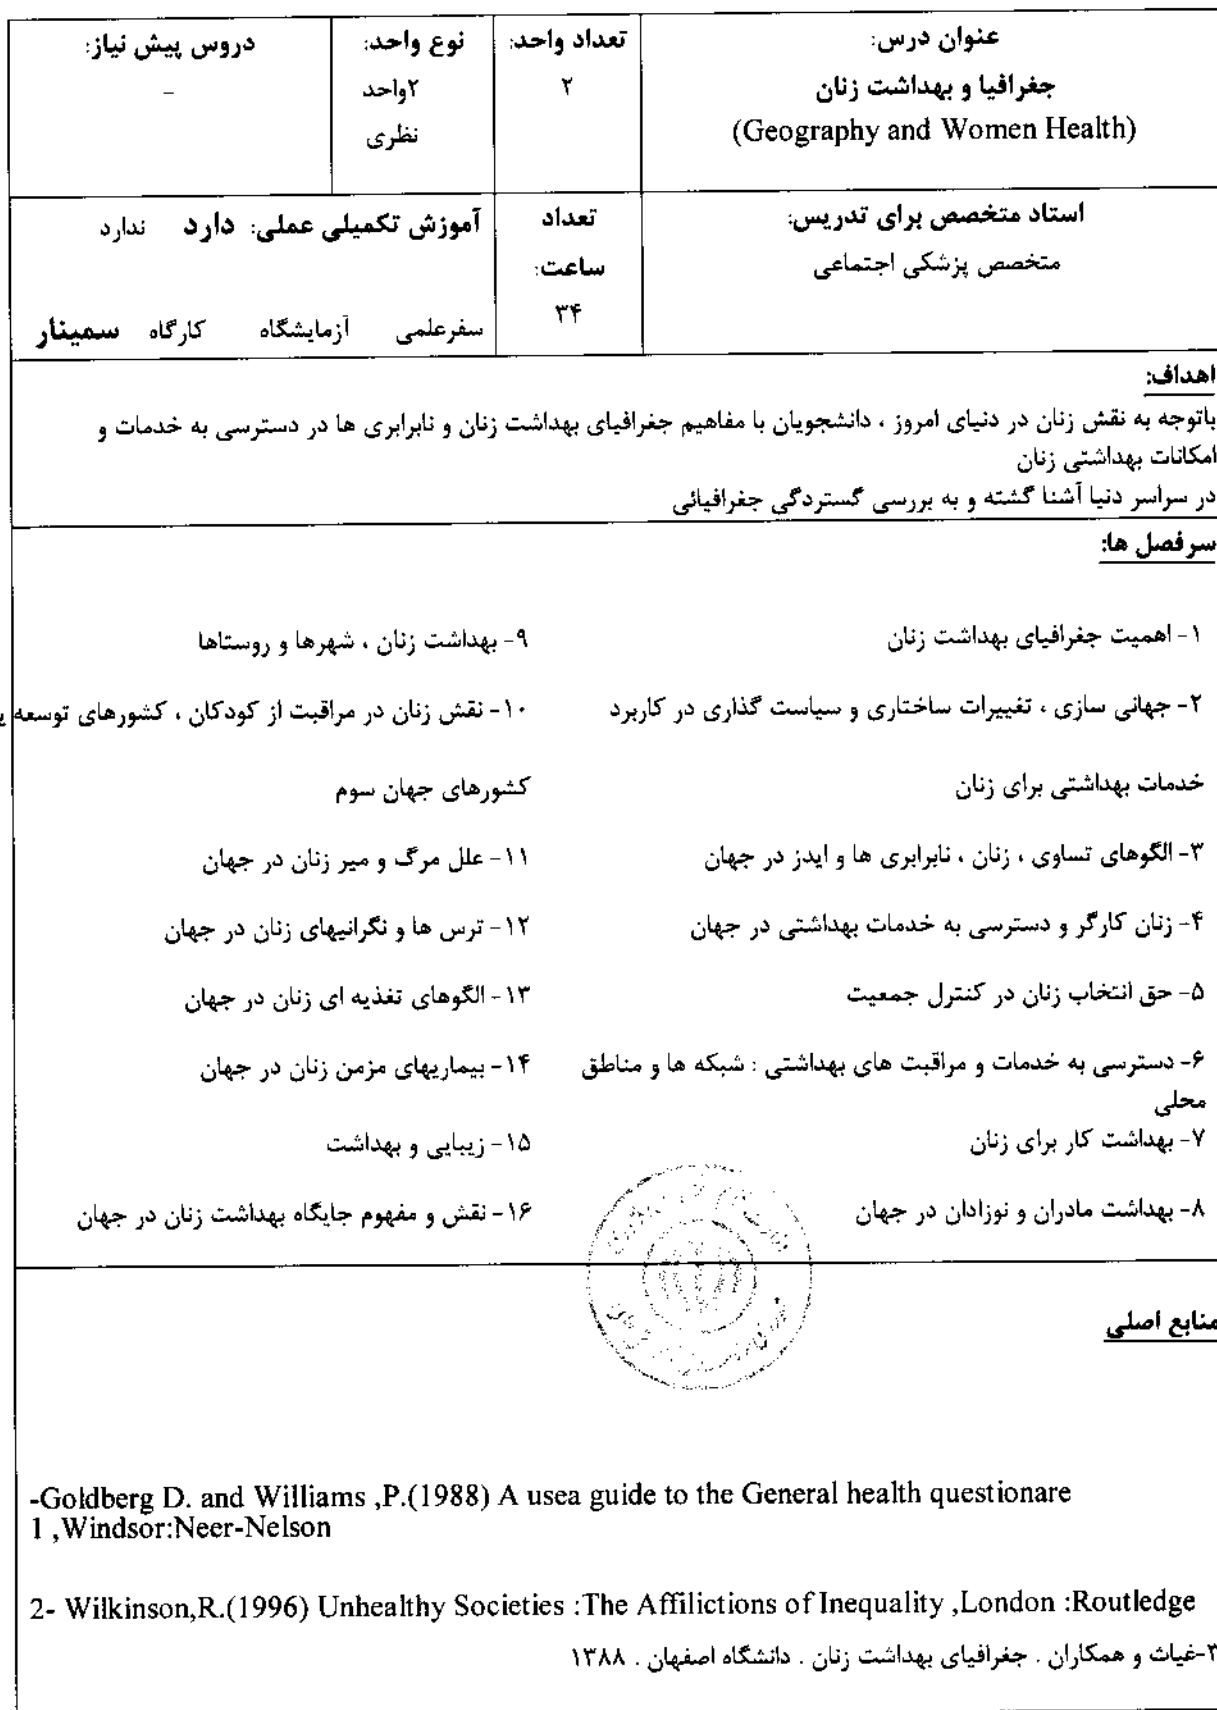 عنوان درس:
جغرافیا و بهداشت زنان
(Geography and Women Health)
تعداد واحد:
۲
نوع واحد:
۲واحد
نظری
دروس پیش نیاز:
–
استاد متخصص برای تدریس:
متخصص پزشکی اجتماعی
تعداد
ساعت:
۳۴
آموزش تکمیلی عملی: دارد ندارد
سفرعلمی آزمایشگاه کارگاه سمینار
اهداف:
باتوجه به نقش زنان در دنیای امروز ، دانشجویان با مفاهیم جغرافیای بهداشت زنان و نابرابری ها در دسترسی به خدمات و
امکانات بهداشتی زنان
در سراسر دنیا آشنا گشته و به بررسی گستردگی جغرافیائی
سرفصل ها:
۱- اهمیت جغرافیای بهداشت زنان
۲- جهانی سازی ، تغییرات ساختاری و سیاست گذاری در کاربرد
خدمات بهداشتی برای زنان
۳- الگوهای تساوی ، زنان ، نابرابری ها و ایدز در جهان
۴- زنان کارگر و دسترسی به خدمات بهداشتی در جهان
۵- حق انتخاب زنان در کنترل جمعیت
۶- دسترسی به خدمات و مراقبت های بهداشتی : شبکه ها و مناطق
محلی
۷- بهداشت کار برای زنان
۸- بهداشت مادران و نوزادان در جهان
۹- بهداشت زنان ، شهرها و روستاها
۱۰- نقش زنان در مراقبت از کودکان ، کشورهای توسعه
کشورهای جهان سوم
۱۱- علل مرگ و میر زنان در جهان
۱۲- ترس ها و نگرانیهای زنان در جهان
۱۳- الگوهای تغذیه ای زنان در جهان
۱۴- بیماریهای مزمن زنان در جهان
۱۵- زیبایی و بهداشت
۱۶- نقش و مفهوم جایگاه بهداشت زنان در جهان
منابع اصلی
-Goldberg D. and Williams ,P.(1988) A usea guide to the General health questionare
1 ,Windsor:Neer-Nelson
2- Wilkinson,R.(1996) Unhealthy Societies :The Affilictions of Inequality ,London :Routledge
۳-غیاث و همکاران . جغرافیای بهداشت زنان . دانشگاه اصفهان . ۱۳۸۸